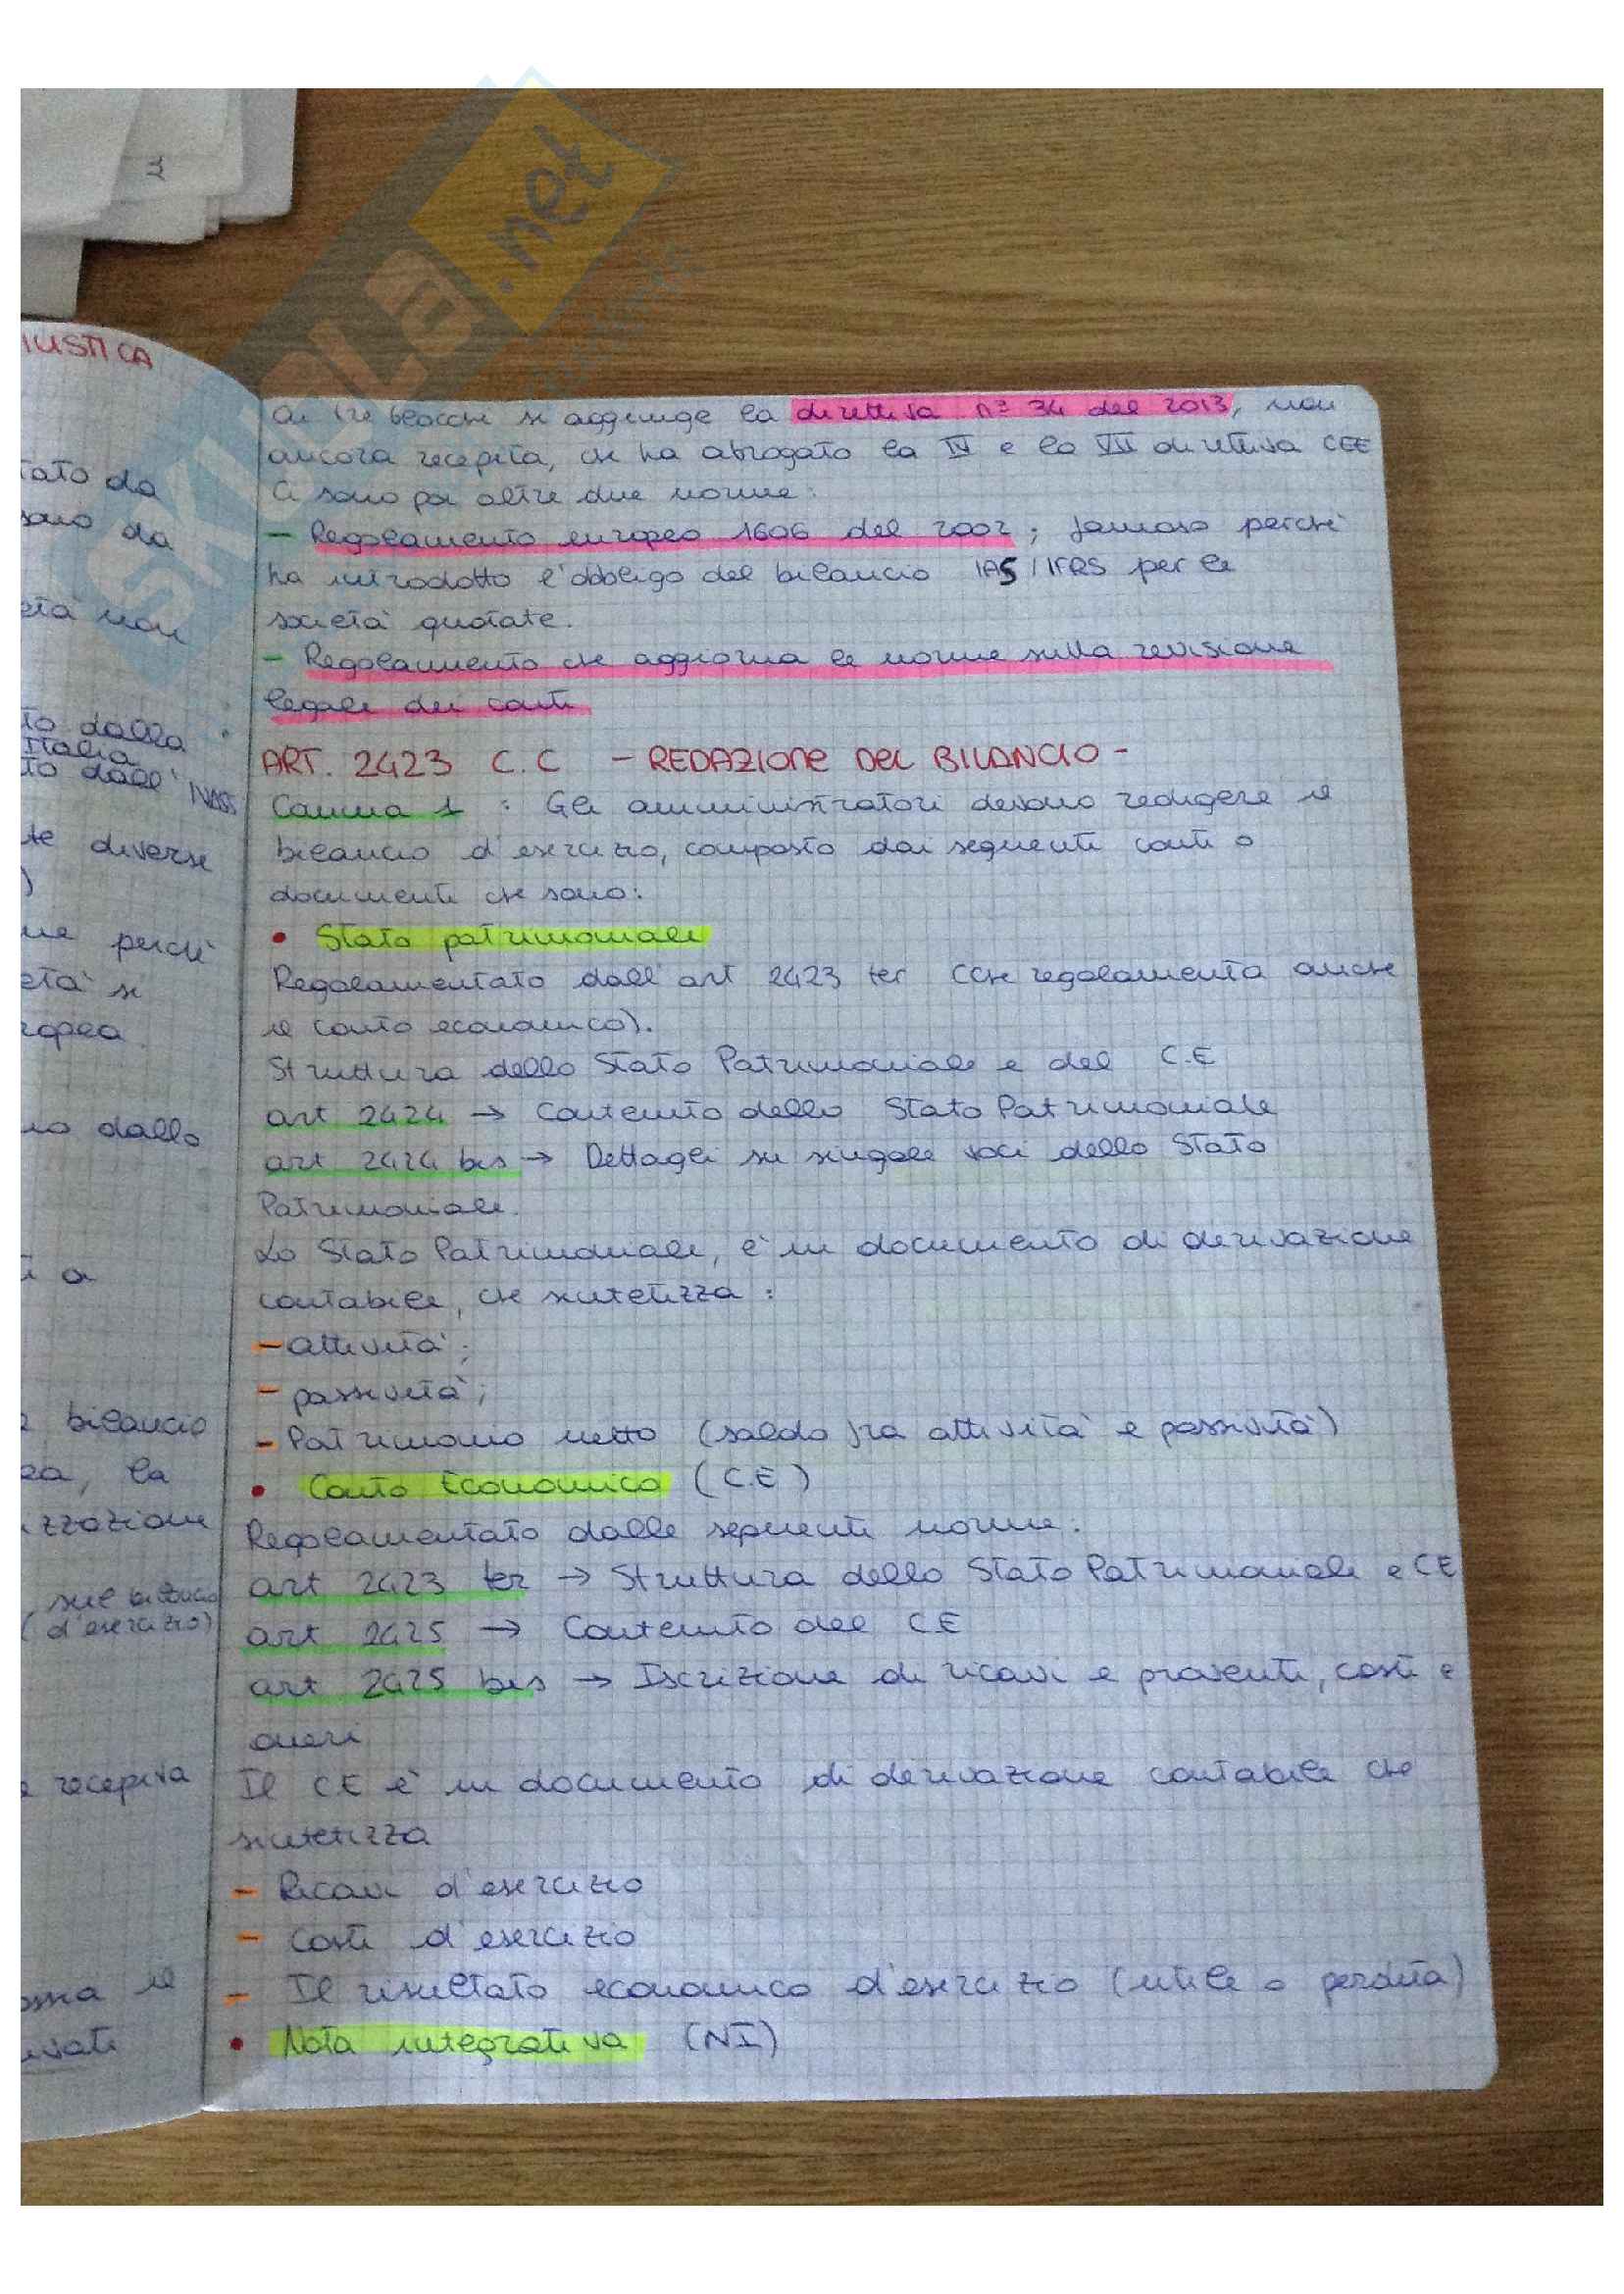 SKUOLA.net
IUSTICA
tato da
sono da
età non
to dalla
Italia
to dall' IVASS
te diverse
)
ne perchè
età si
ropea
no dallo
i a
bilancio
ea, la
izzazione
sul bilancio
(d'esercizio)
e recepita
il
Ai tre blocchi si aggiunge la direttiva n° 34 del 2013, non
ancora recepita, che ha abrogato la IV e la VII direttiva CEE
Ci sono poi altre due norme:
- Regolamento europeo 1606 del 2002; famoso perchè
ha introdotto l'obbligo del bilancio IAS/IFRS per le
società quotate.
- Regolamento che aggiorna le norme sulla revisione
legale dei conti
ART. 2423 C.C - REDAZIONE DEL BILANCIO -
Comma 1 : Gli amministratori devono redigere il
bilancio d'esercizio, composto dai seguenti conti o
documenti che sono:
• Stato patrimoniale
Regolamentato dall'art 2423 ter (che regolamenta anche
il conto economico).
Struttura dello Stato Patrimoniale e del C.E
art 2424 → Contenuto dello Stato Patrimoniale
art 2424 bis → Dettagli su singole voci dello Stato
Patrimoniale.
Lo Stato Patrimoniale, è un documento di derivazione
contabile, che sintetizza :
- attività;
- passività;
- Patrimonio netto (saldo fra attività e passività)
• Conto Economico (C.E)
Regolamentato dalle seguenti norme:
art 2423 ter → Struttura dello Stato Patrimoniale e CE
art 2425 → Contenuto del CE
art 2425 bis → Iscrizione di ricavi e proventi, costi e
oneri
Il CE è un documento di derivazione contabile che
sintetizza
- Ricavi d'esercizio
- Costi d'esercizio
- Il risultato economico d'esercizio (utile o perdita)
• Nota integrativa (NI)